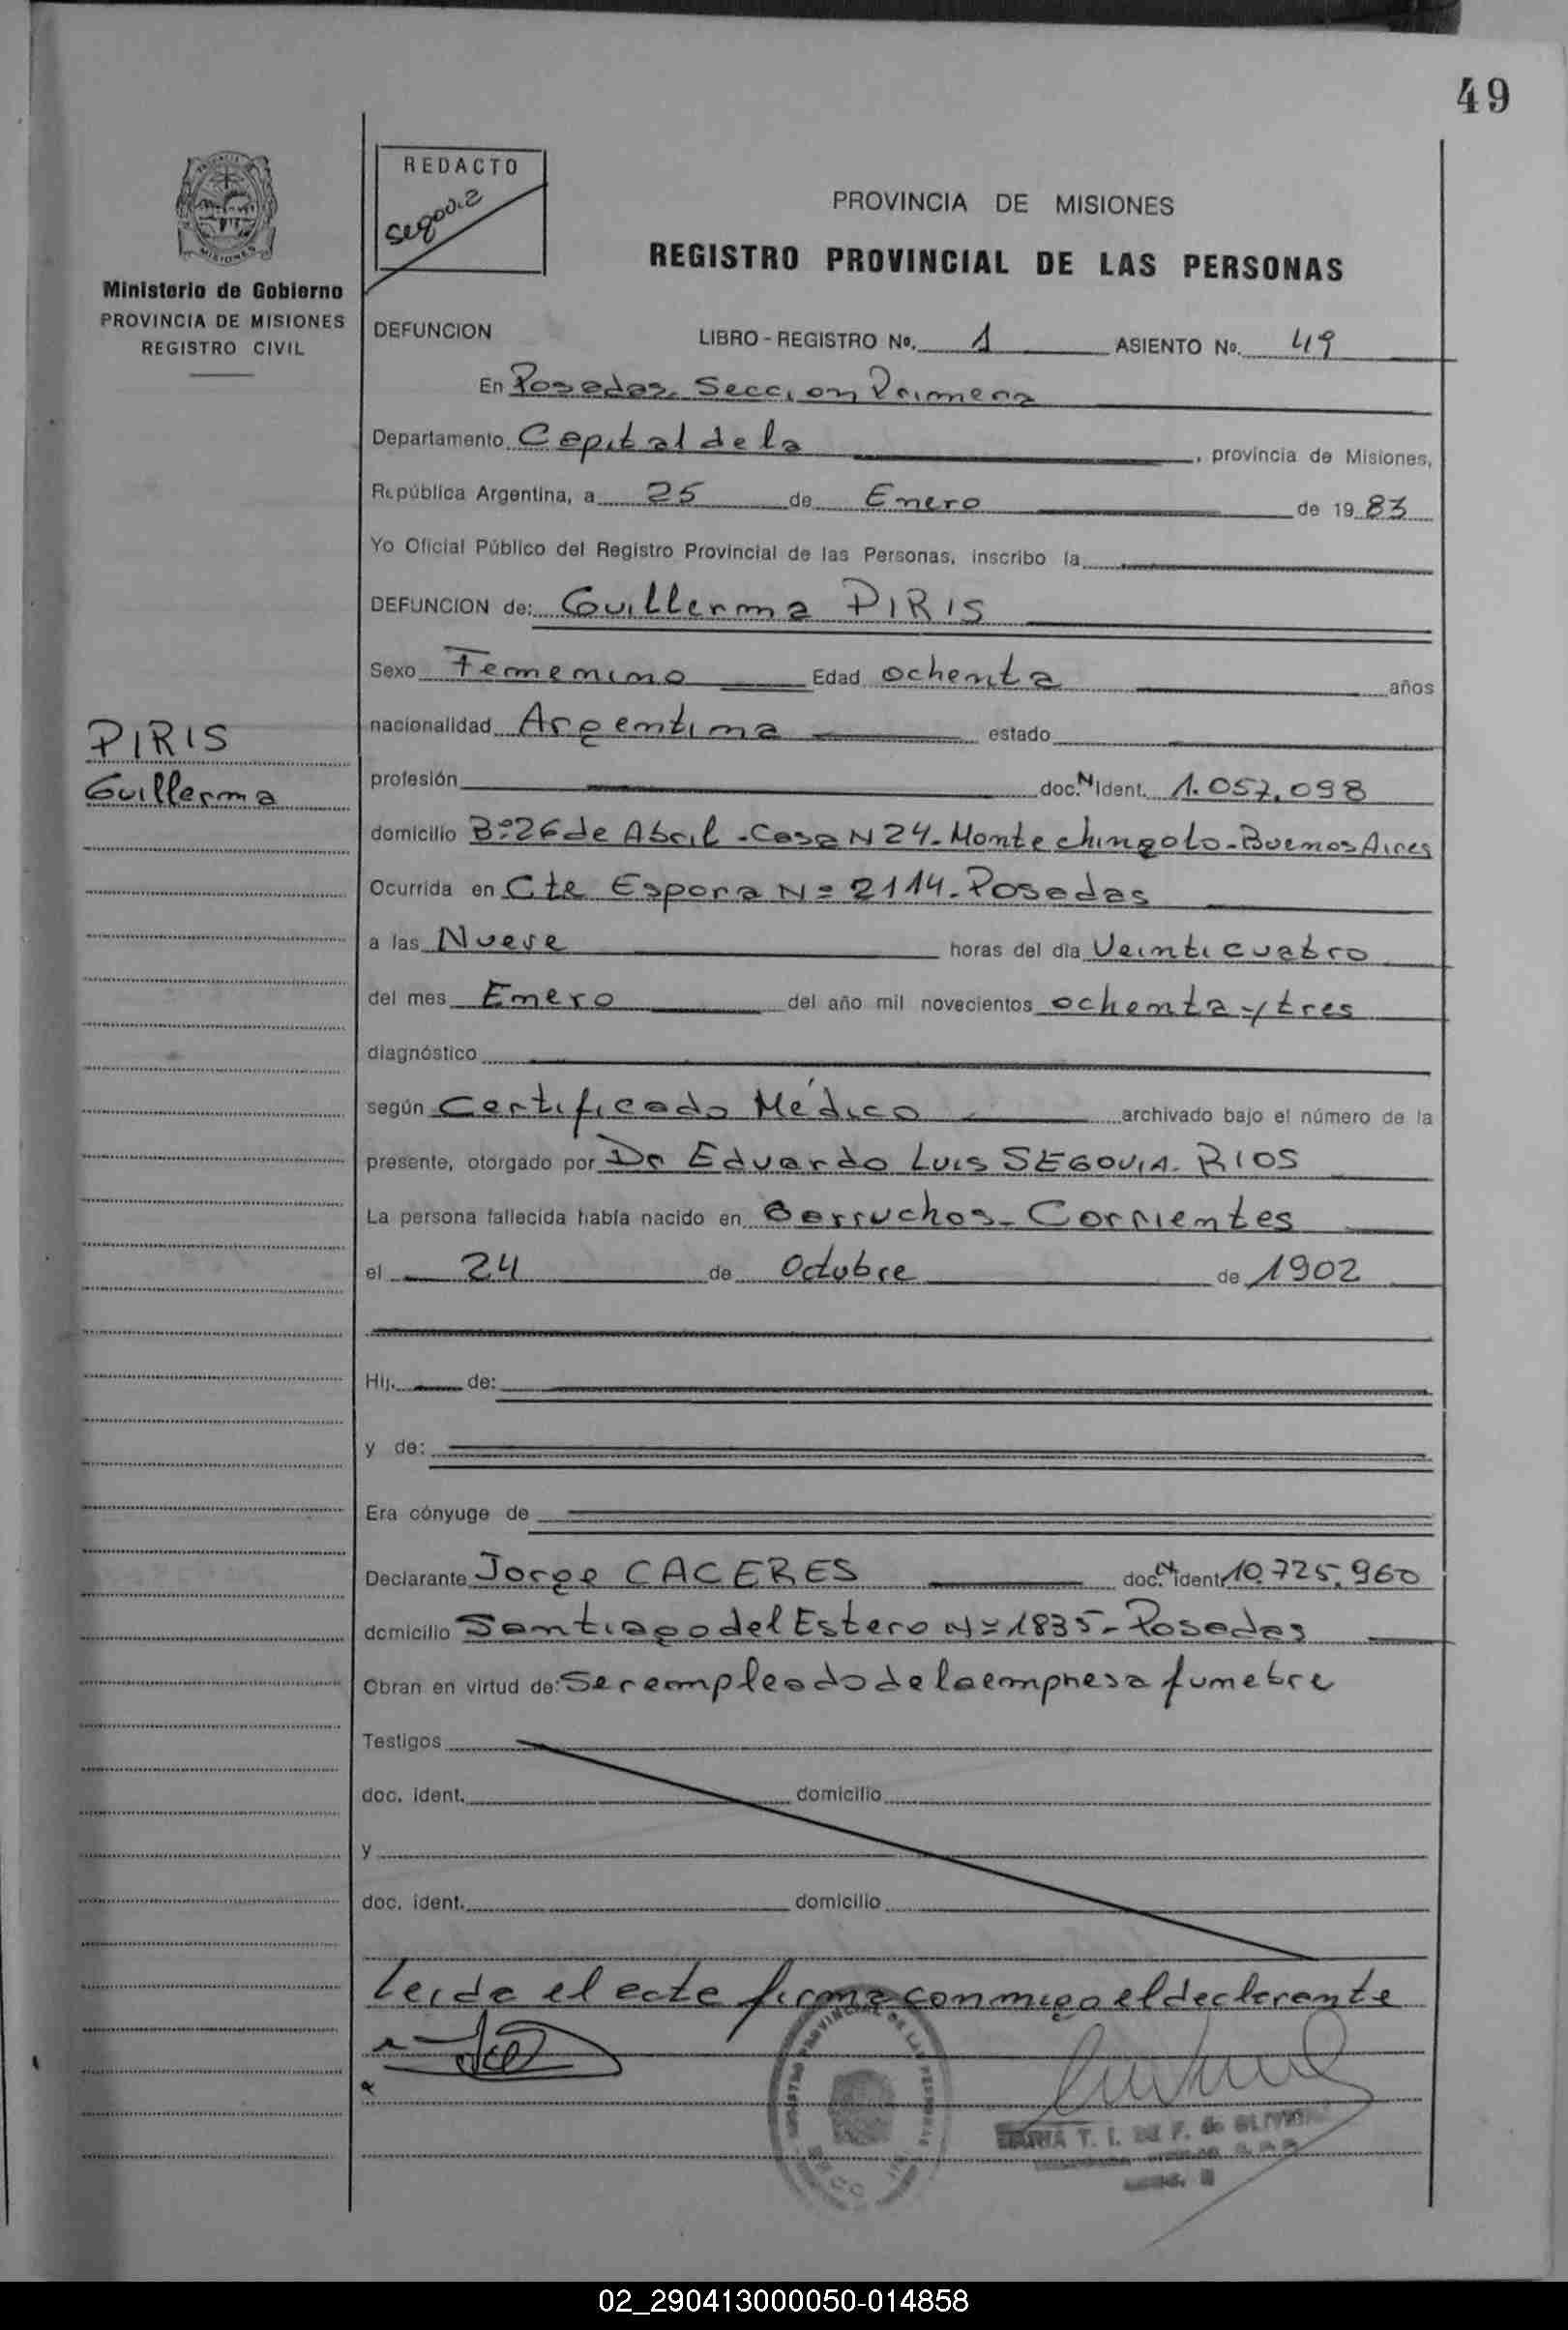 49
REDACTO
Segovia
PROVINCIA DE MISIONES
REGISTRO PROVINCIAL DE LAS PERSONAS
MISIONES
Ministerio de Gobierno
PROVINCIA DE MISIONES
REGISTRO CIVIL
DEFUNCION LIBRO - REGISTRO Nº. 1 ASIENTO Nº. 49
En Posadas, Seccion Primera
Departamento Capital de la , provincia de Misiones,
República Argentina, a 25 de Enero de 1983
Yo Oficial Público del Registro Provincial de las Personas, inscribo la
DEFUNCION de: Guillerma PIRIS
Sexo Femenino Edad ochenta años
PIRIS
Guillerma
nacionalidad Argentina estado
profesión doc. N Ident. 1.057.098
domicilio Bº 26 de Abril - Casa N 24 - Monte chingolo - Buenos Aires
Ocurrida en Cte Espora Nº 2114 - Posadas
a las Nueve horas del día Veinticuatro
del mes Enero del año mil novecientos ochenta y tres
diagnóstico
según Certificado Médico archivado bajo el número de la
presente, otorgado por Dr Eduardo Luis SEGOVIA RIOS
La persona fallecida había nacido en Garruchos - Corrientes
el 24 de Octubre de 1902
Hij. de:
y de:
Era cónyuge de
Declarante Jorge CACERES doc. N ident. 10.725.960
domicilio Santiago del Estero Nº 1835 - Posadas
Obran en virtud de: Ser empleado de la empresa funebre
Testigos
doc. ident. domicilio
y
doc. ident. domicilio
Leida el acta firma conmigo el declarante
REGISTRO PROVINCIAL DE LAS PERSONAS
T. I. DE F. de
02_290413000050-014858